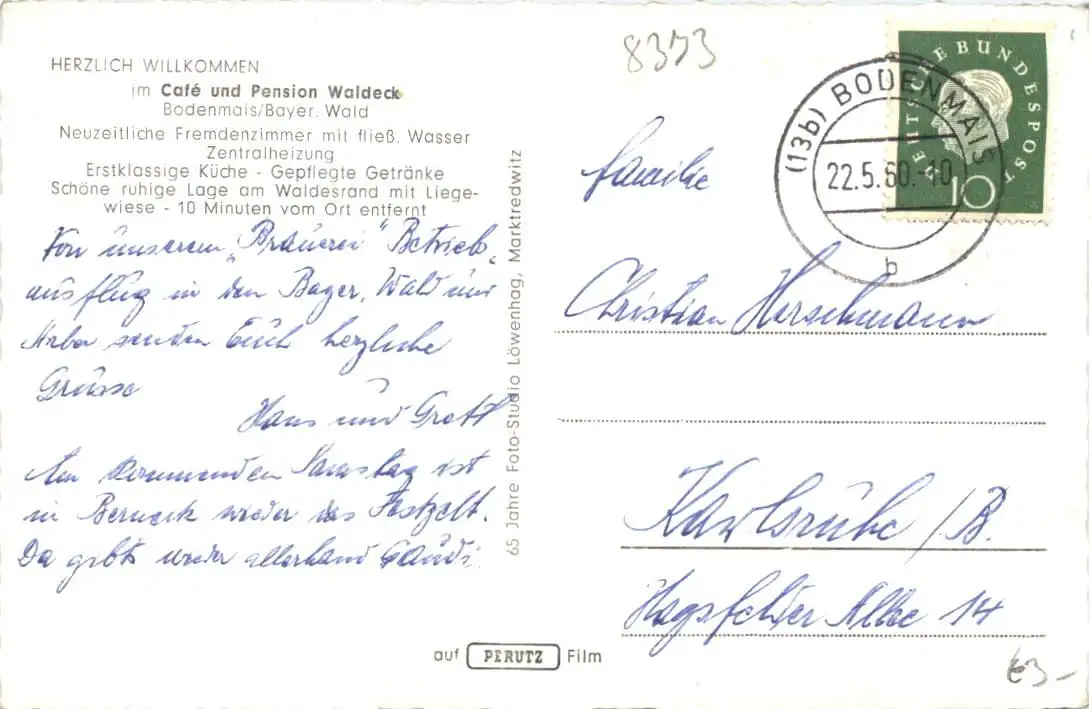 HERZLICH WILLKOMMEN
im Café und Pension Waldeck
Bodenmais/Bayer. Wald
Neuzeitliche Fremdenzimmer mit fließ. Wasser
Zentralheizung
Erstklassige Küche - Gepflegte Getränke
Schöne ruhige Lage am Waldesrand mit Liege-
wiese - 10 Minuten vom Ort entfernt
Von unserem „Brauerei" Betriebs-
ausflug in den Bayer. Wald und
Arber senden Euch herzliche
Grüsse
Hans und Gretl
Am kommenden Samstag ist
in Berneck wieder das Festzelt.
Da gibts wieder allerhand Gaudi.
65 Jahre Foto-Studio Löwenhag, Marktredwitz
auf PERUTZ Film
8373
DEUTSCHE BUNDESPOST
10
(13b) BODENMAIS
22.5.60.-10
b
Familie
Christian Herschmann
Karlsruhe /B.
Hagsfelder Allee 14
€3-